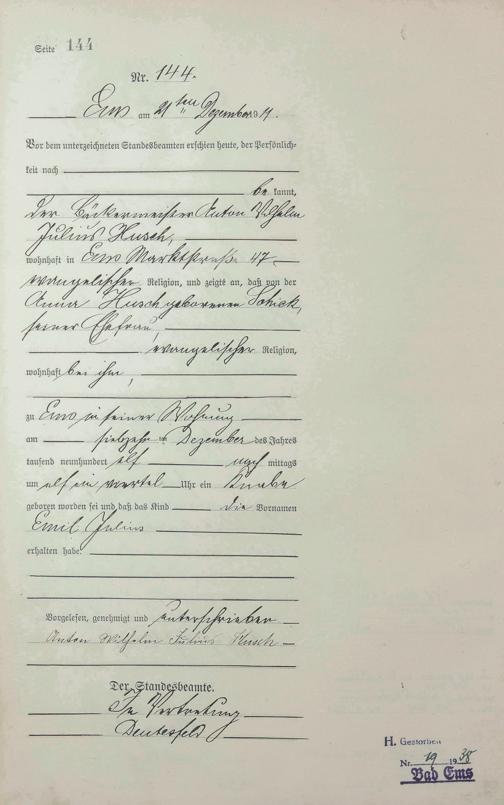 Seite 144
Nr. 144.
Ems am 21ten Dezember 1911.
Vor dem unterzeichneten Standesbeamten erschien heute, der Persönlich-
keit nach
be kannt,
der Bäckermeister Anton Wilhelm
Julius Husch,
wohnhaft in Ems Marktstraße 47
evangelischer Religion, und zeigte an, daß von der
Anna Husch geborenen Schick,
seiner Ehefrau,
evangelischer Religion,
wohnhaft bei ihm,
zu Ems in seiner Wohnung
am siebzehn ten Dezember des Jahres
tausend neunhundert elf nach mittags
um elf ein viertel Uhr ein Knabe
geboren worden sei und daß das Kind die Vornamen
Emil Julius
erhalten habe.
Vorgelesen, genehmigt und unterschrieben
Anton Wilhelm Julius Husch
Der Standesbeamte.
In Vertretung
H. Gestorben
Nr. 19 1938
Bad Ems